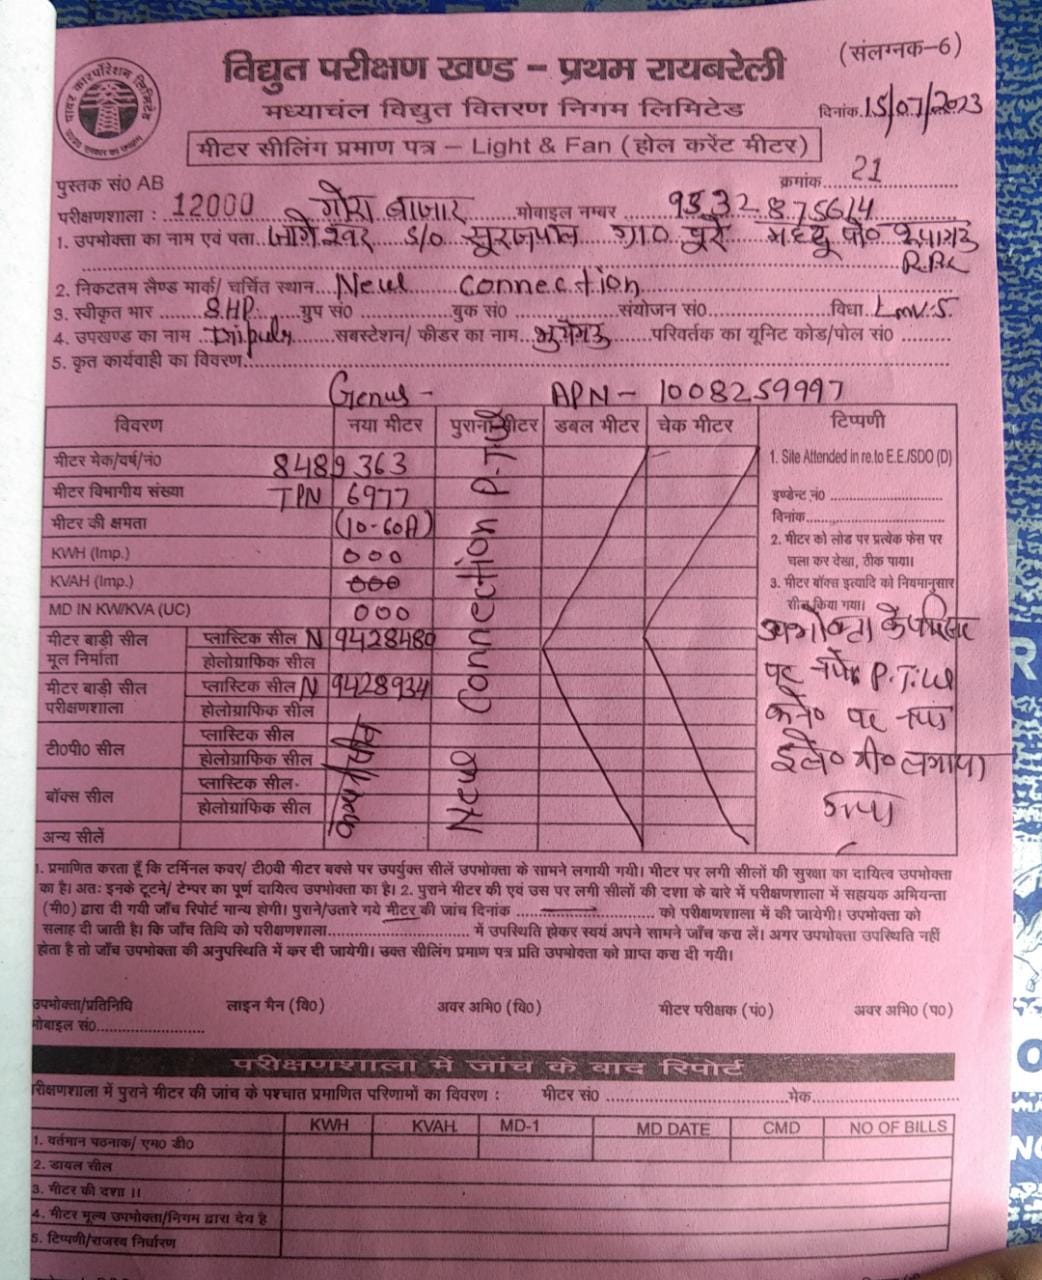 (संलग्नक-6)
विद्युत परीक्षण खण्ड - प्रथम रायबरेली
मध्याचंल विद्युत वितरण निगम लिमिटेड
दिनांक 15/07/2023
मीटर सीलिंग प्रमाण पत्र - Light & Fan (होल करेंट मीटर)
पुस्तक सं0 AB 12000
क्रमांक 21
परीक्षणशाला : गोरा बाजार मोबाइल नम्बर 9532875614
1. उपभोक्ता का नाम एवं पता जागेश्वर S/O सूरजपाल ग्रा0 पूरे
2. निकटतम लैण्ड मार्क/ चर्चित स्थान New connection
3. स्वीकृत भार 8HP ग्रुप सं0 बुक सं0 संयोजन सं0 विधा Lmv-5
4. उपखण्ड का नाम सबस्टेशन/ फीडर का नाम परिवर्तक का यूनिट कोड/पोल सं0
5. कृत कार्यवाही का विवरण
Genus - APN - 1008259997
विवरण नया मीटर पुराना मीटर डबल मीटर चेक मीटर टिप्पणी
मीटर मेक/वर्ष/नं0 8489363
मीटर विभागीय संख्या TPN 6977
मीटर की क्षमता (10-60A)
KWH (Imp.) 000
KVAH (Imp.) 000
MD IN KW/KVA (UC) 000
मीटर बाड़ी सील मूल निर्माता प्लास्टिक सील N 9428480
होलोग्राफिक सील
मीटर बाड़ी सील परीक्षणशाला प्लास्टिक सील N 9428934
होलोग्राफिक सील
टी0पी0 सील प्लास्टिक सील
होलोग्राफिक सील
बॉक्स सील प्लास्टिक सील
होलोग्राफिक सील
अन्य सीलें
New Connection P.T.W
1. Site Attended in re.to E.E./SDO (D)
इण्डेन्ट नं0
दिनांक
2. मीटर को लोड पर प्रत्येक फेस पर
चला कर देखा, ठीक पाया।
3. मीटर बॉक्स इत्यादि को नियमानुसार
सील किया गया।
उपभोक्ता के परिसर
पर नये P.T.W
कने0 पर नया
इले0 मी0 लगाया
गया
1. प्रमाणित करता हूँ कि टर्मिनल कवर/ टी0वी मीटर बक्से पर उपर्युक्त सीलें उपभोक्ता के सामने लगायी गयी। मीटर पर लगी सीलों की सुरक्षा का दायित्व उपभोक्ता
का है। अतः इनके टूटने/ टेम्पर का पूर्ण दायित्व उपभोक्ता का है। 2. पुराने मीटर की एवं उस पर लगी सीलों की दशा के बारे में परीक्षणशाला में सहायक अभियन्ता
(मी0) द्वारा दी गयी जाँच रिपोर्ट मान्य होगी। पुराने/उतारे गये मीटर की जांच दिनांक को परीक्षणशाला में की जायेगी। उपभोक्ता को
सलाह दी जाती है। कि जाँच तिथि को परीक्षणशाला में उपस्थिति होकर स्वयं अपने सामने जाँच करा लें। अगर उपभोक्ता उपस्थिति नहीं
होता है तो जाँच उपभोक्ता की अनुपस्थिति में कर दी जायेगी। उक्त सीलिंग प्रमाण पत्र प्रति उपभोक्ता को प्राप्त करा दी गयी।
उपभोक्ता/प्रतिनिधि लाइन मैन (वि0) अवर अभि0 (वि0) मीटर परीक्षक (पं0) अवर अभि0 (प0)
मोबाइल सं0
परीक्षणशाला में जांच के बाद रिपोर्ट
परीक्षणशाला में पुराने मीटर की जांच के पश्चात प्रमाणित परिणामों का विवरण : मीटर सं0 मेक
KWH KVAH MD-1 MD DATE CMD NO OF BILLS
1. वर्तमान पठनाक/ एम0 डी0
2. डायल सील
3. मीटर की दशा ।।
4. मीटर मूल्य उपभोक्ता/निगम द्वारा देय है
5. टिप्पणी/राजस्व निर्धारण